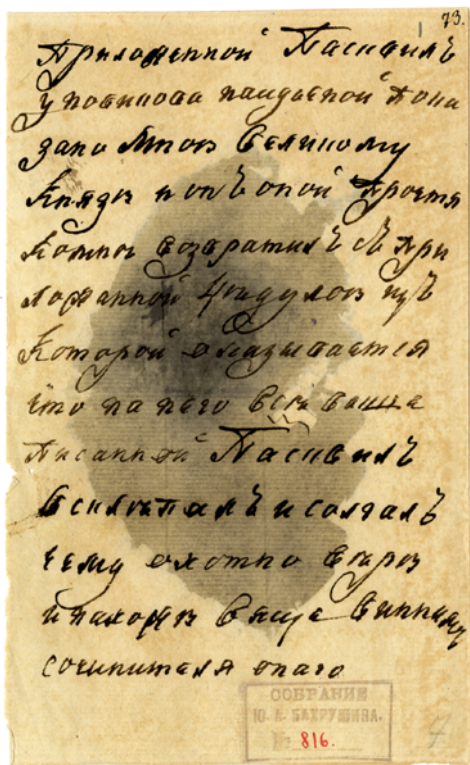 73.
Приложенной Пасквиль
у новикова найденой Пока
зано Мною Великому
Князю и онъ оной прочтя
Комне возвратилъ съ при
ложенной цыдулою изъ
Которой оказывается
что на него всё
писанной Пасквиль
всклепалъ и солгалъ
чему охотно верю
и нахожу вяще виннымъ
сочинителя онаго
СОБРАНИЕ
Ю. А. БАХРУШИНА.
№ 816.